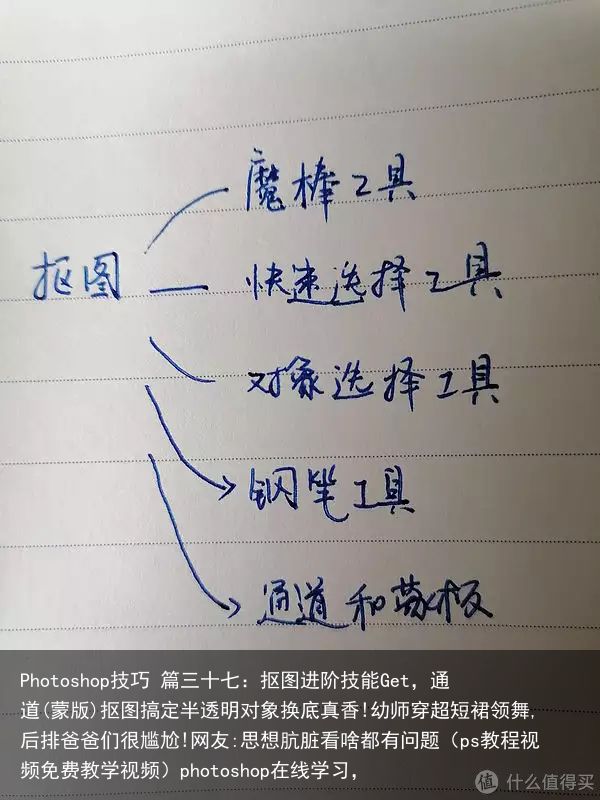 魔棒工具
抠图
快速选择工具
对象选择工具
钢笔工具
通道和蒙板
Photoshop技巧 篇三十七：抠图进阶技能Get，通
道(蒙版)抠图搞定半透明对象换底真香!幼师穿超短裙领舞,
后排爸爸们很尴尬!网友:思想肮脏看啥都有问题（ps教程视
频免费教学视频）photoshop在线学习，
值 什么值得买